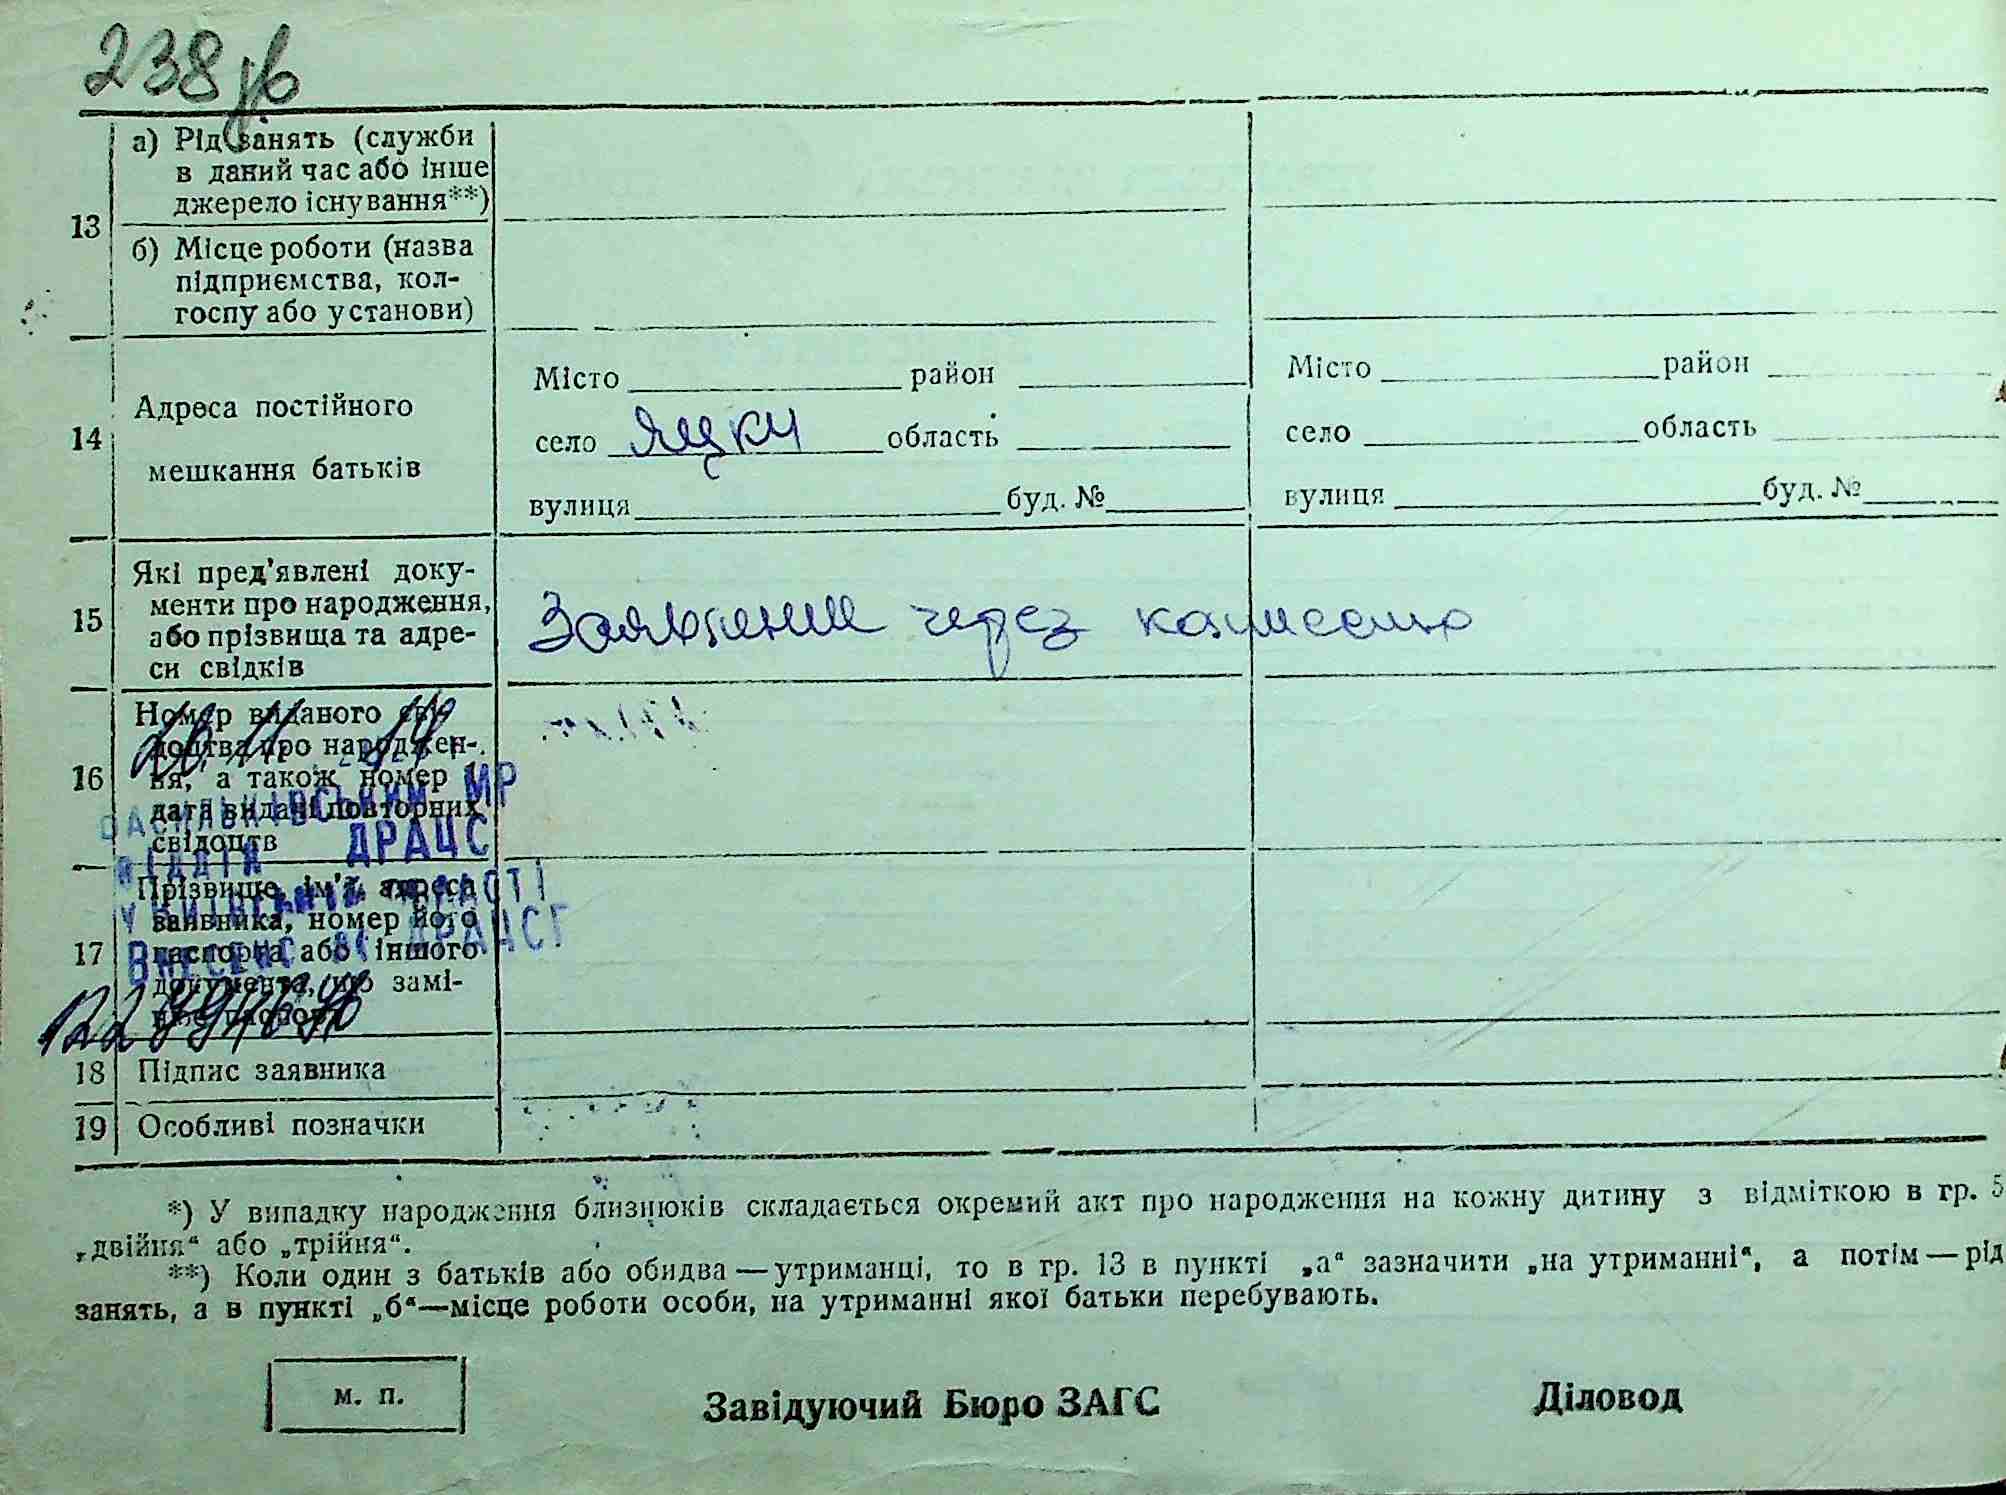 238 зв
13
а) Рід занять (служби
в даний час або інше
джерело існування**)
б) Місце роботи (назва
підприємства, кол-
госпу або установи)
14
Адреса постійного
мешкання батьків
Місто район
село Яцки область
вулиця буд. №
Місто район
село область
вулиця буд. №
15
Які пред'явлені доку-
менти про народження,
або прізвища та адре-
си свідків
Заявление через комиссию
16
Номер виданого сві-
доцтва про народжен-
ня, а також номер і
дата видані повторних
свідоцтв
ВАСИЛЬКІВСЬКИМ МР
ВІДДІЛ ДРАЦС
У КИЇВСЬКІЙ ОБЛАСТІ
ВНЕСЕНО ДРАЦСГ
17
Прізвище, ім'я, адреса
заявника, номер його
паспорта або іншого
документа, що замі-
няє паспорт
18
Підпис заявника
19
Особливі позначки
*) У випадку народження близнюків складається окремий акт про народження на кожну дитину з відміткою в гр. 5
„двійня“ або „трійня“.
**) Коли один з батьків або обидва — утриманці, то в гр. 13 в пункті „а“ зазначити „на утриманні“, а потім — рід
занять, а в пункті „б“—місце роботи особи, на утриманні якої батьки перебувають.
м. п.
Завідуючий Бюро ЗАГС
Діловод